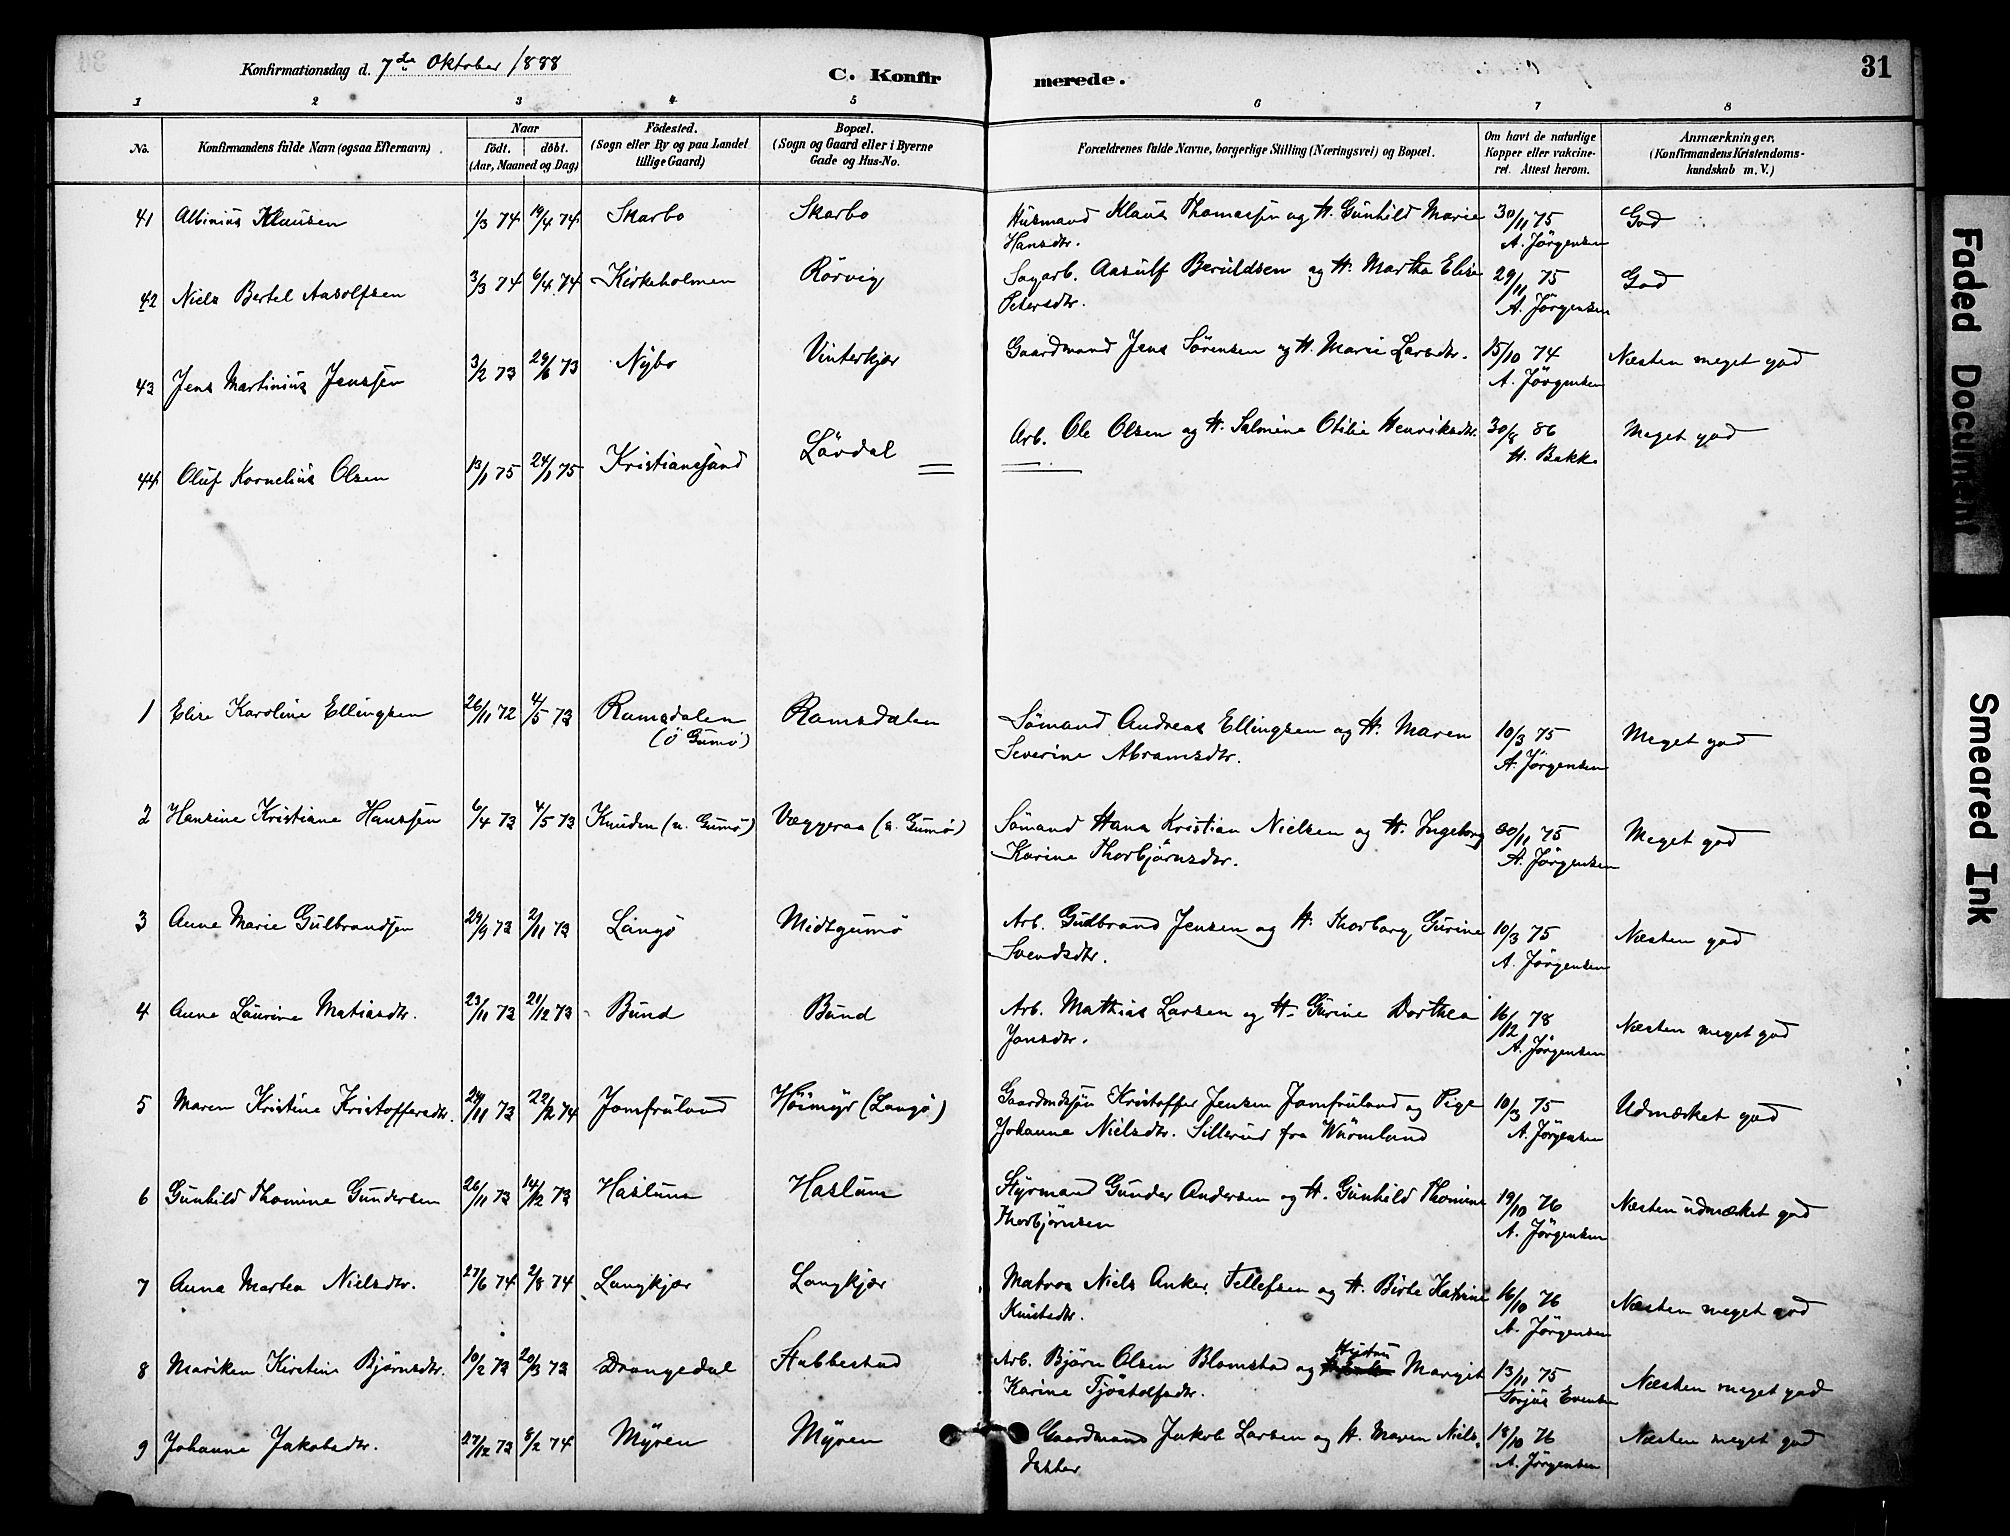 Konfirmationsdag d. 7de Oktober 1888
C. Konfir
merede.
31
1 2 3 4 5 6 7 8
No.
Konfirmandens fulde Navn (ogsaa Efternavn)
Naar
födt. döbt.
(Aar, Maaned og Dag)
Födested.
(Sogn eller By og paa Landet
tillige Gaard)
Bopæl.
(Sogn og Gaard eller i Byerne
Gade og Hus-No.
Forældrenes fulde Navne, borgerlige Stilling (Næringsvei) og Bopæl.
Om havt de naturlige
Kopper eller vakcine-
ret. Attest herom.
Anmærkninger.
(Konfirmandens Kristendoms-
kundskab m. V.)
41 Albinius Klausen 1/3 74 19/4 74 Skarbo Skarbo Husmand Klaus Thomassen og H. Gunhild Marie 30/11 75 God
Hansdtr. A. Jörgensen
42 Niels Bertel Aasolfsen 3/3 74 6/4 74 Kirkeholmen Rörvig Sagarb. Aasulf Beruldsen og H. Martha Elise 29/11 75 God
Petersdtr. A. Jörgensen
43 Jens Martinius Jenssen 3/2 73 29/6 73 Nybo Vinterkjær Gaardmand Jens Sörensen og H. Marie Larsdtr. 15/10 74 Næsten meget god
A. Jörgensen
44 Oluf Kornelius Olsen 13/1 75 24/1 75 Kristianssand Lövdal Arb. Ole Olsen og H. Salmine Otilie Henriksdtr. 30/8 86 Meget god
H. Bakke
1 Elise Karoline Ellingsen 26/11 72 4/5 73 Ramsdalen Ramsdalen Sömand Andreas Ellingsen og H. Maren 10/3 75 Meget god
(ö Gumö) Severine Abramsdtr. A. Jörgensen
2 Hansine Kristiane Hanssen 6/4 73 4/5 73 Knuden (u. Gumö) Væggeraa (u. Gumö) Sömand Hans Kristian Nielsen og H. Ingeborg 30/11 75 Meget god
Karine Thorbjörnsdtr. A. Jörgensen
3 Anne Marie Gulbrandsen 29/9 73 2/11 73 Langö Midtgumö Arb. Gudbrand Jensen og H. Thorborg Gurine 10/3 75 Næsten god
Svendsdtr. A. Jörgensen
4 Anne Laurine Matiasdtr. 23/11 73 21/12 73 Bund Bund Arb. Mathias Larsen og H. Gurine Dorthea 16/12 78 Næsten meget god
Jonsdtr. A. Jörgensen
5 Maren Kristine Kristoffersdtr. 29/11 73 22/2 74 Jomfruland Höimyr (Langö) Gaardmdssön Kristoffer Jensen Jomfruland og Pige 10/3 75 Udmærket god
Johanne Nielsdtr. Sillerud fra Wärmland A. Jörgensen
6 Gunhild Thomine Gundersen 26/11 73 14/12 73 Haslum Haslum Styrmand Gunder Andersen og H. Gunhild Thomine 19/10 76 Næsten udmærket god
Thorbjörnsen A. Jörgensen
7 Anna Martea Nielsdtr. 27/6 74 2/8 74 Langkjær Langkjær Matros Niels Anker Tellefsen og H. Birte Katrine 16/10 76 Næsten meget god
Knutsdtr. A. Jörgensen
8 Mariken Kirstine Björnsdtr. 10/2 73 20/3 73 Drangedal Stubbestad Arb. Björn Olsen Blomstad og Hustru Margit 13/11 75 Næsten meget god
Karine Tjöstolfsdtr. Torjus Evensen
9 Johanne Jakobsdtr. 27/12 73 8/2 74 Myren Myren Gaardmand Jakob Larsen og H. Maren Niels- 18/10 76 Næsten meget god
datter A. Jörgensen
Faded Document
Smeared Ink